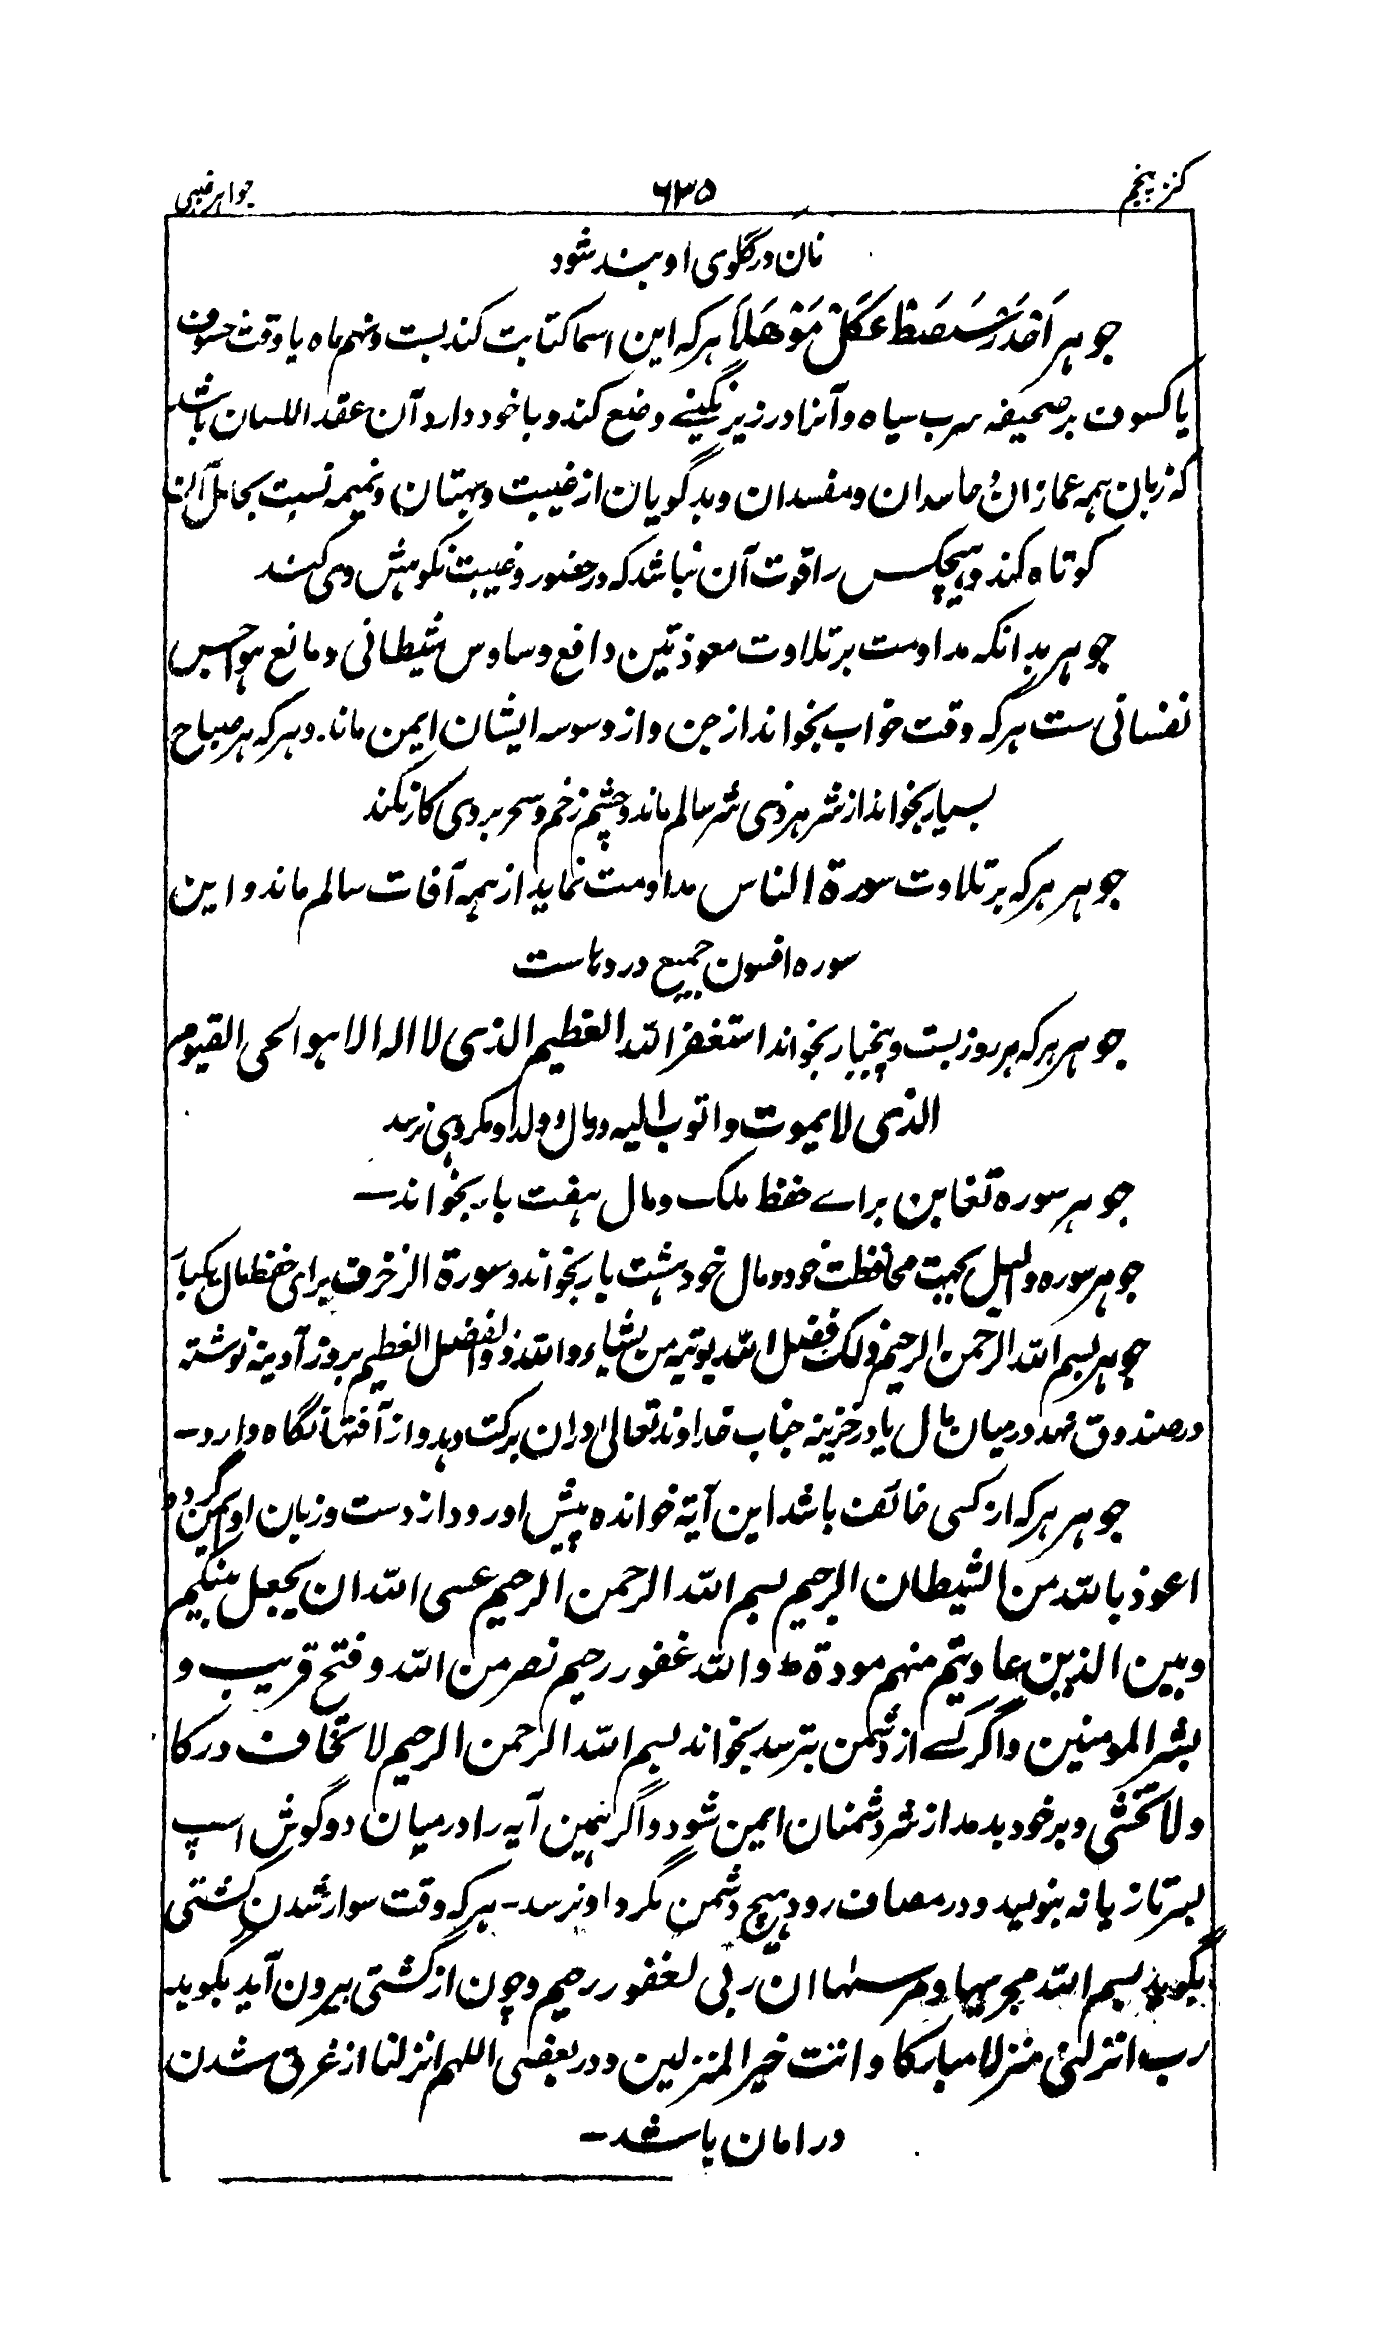 کنز پنجم ۶۳۵ جواهر غیبی
نان در گلوی او بند شود
جوهر هرکه این اسما کتابت کند بست و نهم ماه یا وقت خسوف
یا کسوف بر صحیفه سرب سیاه و آنرا در زیر نگینے وضع کند و با خود دارد آن عقد اللسان باشد
که زبان همه غمازان و حاسدان و مفسدان و بدگویان از غیبت و بهتان و نمیمه نسبت بحامل آن
کوتاه کند و هیچکس را قوت آن نباشد که در حضور و غیبت نکوهش وی کند
جوهر بدانکه مداومت بر تلاوت معوذتین دافع وساوس شیطانی و مانع هواجس
نفسانی ست هرکه وقت خواب بخواند از جن و از وسوسه ایشان ایمن ماند. و هرکه هر صباح
بسیار بخواند از شر هر ذی شر سالم ماند و چشم زخم و سحر بر وی کار نکند
جوهر هرکه بر تلاوت سورة الناس مداومت نماید از همه آفات سالم ماند و این
سوره افسون جمیع دردهاست
جوهر هرکه هر روز بست و پنجبار بخواند استغفر الله العظیم الذی لا اله الا هو الحی القیوم
الذی لا یموت و اتوب الیه در مال و ولد او مکروهی نرسد
جوهر سوره تغابن براے حفظ ملک و مال هفت بار بخواند —
جوهر سوره و اللیل بجهت محافظت خود و مال خود هشت بار بخواند و سورة الزخرف برای حفظ مال یکبار
جوهر بسم الله الرحمن الرحیم ذلک فضل الله یوتیه من یشاء و الله ذو الفضل العظیم بروز آدینه نوشته
در صندوق نهد در میان مال یا در خزینه جناب خداوند تعالی دران برکت دهد و از آفتها نگاه دارد —
جوهر هرکه از کسی خائف باشد این آیة خوانده پیش او رود از دست و زبان او ایمن گردد
اعوذ بالله من الشیطان الرجیم بسم الله الرحمن الرحیم عسی الله ان یجعل بینکم
و بین الذین عادیتم منهم مودة ط و الله غفور رحیم نصر من الله و فتح قریب و
بشر المومنین و اگر کسے از دشمن بترسد بخواند بسم الله الرحمن الرحیم لا تخاف درکا
و لا تخشی و بر خود بدمد از شر دشمنان ایمن شود و اگر همین آیه را در میان دو گوش اسپ
بسر تازیانه بنویسد و در مصاف رود هیچ دشمن بگرد او نرسد - هرکه وقت سوار شدن کشتی
بگوید بسم الله مجریها و مرسٰها ان ربی لغفور رحیم و چون از کشتی بیرون آید بگوید
رب انزلنی منزلا مبارکا و انت خیر المنزلین و در بعضی اللهم انزلنا از غرق شدن
در امان باشد —